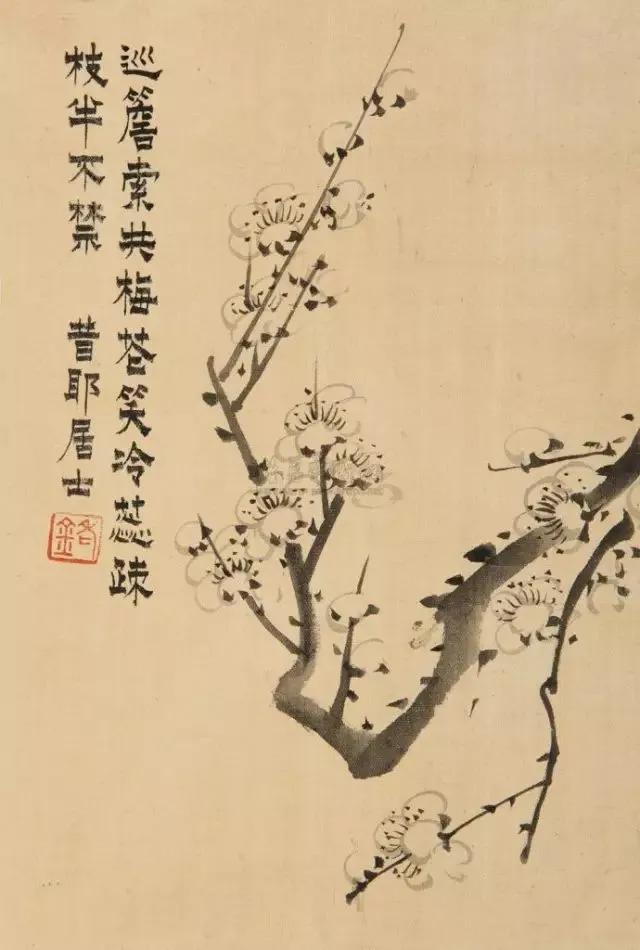 巡簷索共梅花笑冷蕊疎
枝半不禁 昔耶居士